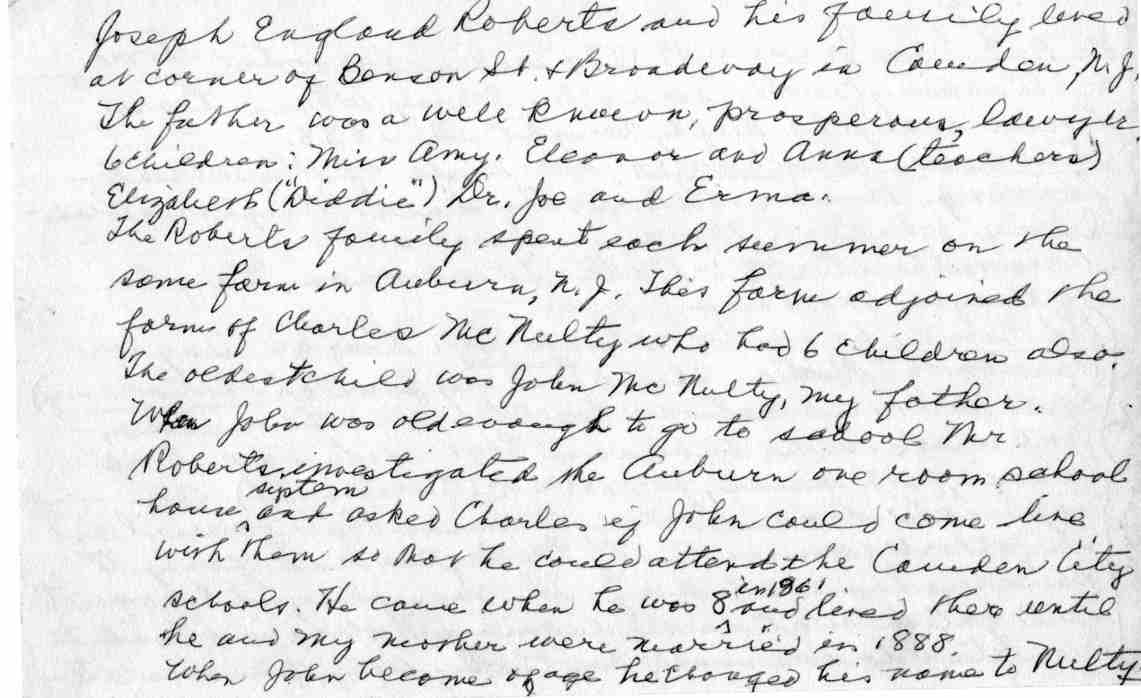 Joseph England Roberts and his family lived
at corner of Benson St. & Broadway in Camden, N.J.
The father was a well known, prosperous, lawyer.
6 children: Miss Amy. Eleanor and Anna (teachers)
Elizabeth ("Diddie") Dr. Joe and Erma.
The Roberts family spent each summer on the
same farm in Auburn, N.J. This farm adjoined the
farm of Charles McNulty who had 6 children also.
The oldest child was John McNulty, my father.
When John was old enough to go to school Mr.
Roberts investigated the Auburn one room school
house system and asked Charles if John could come live
with them so that he could attend the Camden City
schools. He came when he was 8 and lived there until
he and my mother were married in 1888.
When John became of age he changed his name to Nulty